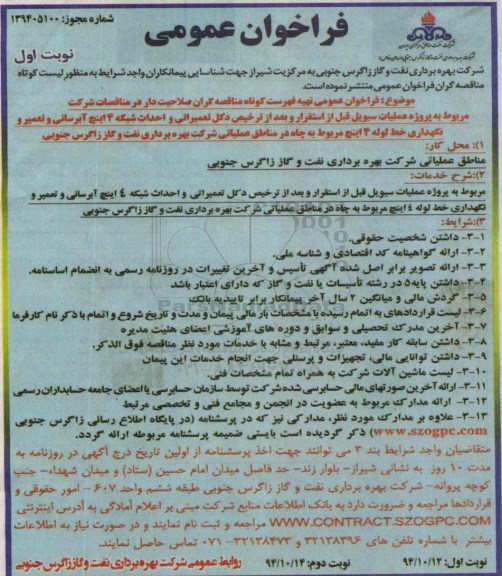 شماره مجوز: ۱۳۹۴۰۵۱۰۰
فراخوان عمومی
نوبت اول
شرکت بهره برداری نفت و گاز زاگرس جنوبی به مرکزیت شیراز جهت شناسایی پیمانکاران واجد شرایط به منظور لیست کوتاه
مناقصه گران فراخوان عمومی منتشر نموده است.
موضوع : فراخوان عمومی تهیه فهرست کوتاه مناقصه گران صلاحیت دار در مناقصات شرکت
مربوط به پروژه عملیات سیویل قبل از استقرار و بعد از ترخیص دکل تعمیراتی و احداث شبکه ۴ اینچ آبرسانی و تعمیر و
نگهداری خط لوله ۴ اینچ مربوط به چاه در مناطق عملیاتی شرکت بهره برداری نفت و گاز زاگرس جنوبی
۱): محل کار:
مناطق عملیاتی شرکت بهره برداری نفت و گاز زاگرس جنوبی
۲):شرح خدمات:
مربوط به پروژه عملیات سیویل قبل از استقرار و بعد از ترخیص دکل تعمیراتی و احداث شبکه ۴ اینچ آبرسانی و تعمیر و
نگهداری خط لوله ۴ اینچ مربوط به چاه در مناطق عملیاتی شرکت بهره برداری نفت و گاز زاگرس جنوبی
۳):شرایط:
۳-۱- داشتن شخصیت حقوقی.
۳-۲- ارائه گواهینامه کد اقتصادی و شناسه ملی.
۳-۳- ارائه تصویر برابر اصل شده آگهی تأسیس و آخرین تغییرات در روزنامه رسمی به انضمام اساسنامه.
۳-۴- داشتن پایه ۵ در رشته تأسیسات یا نفت و گاز که دارای اعتبار باشد
۳-۵- گردش مالی و میانگین ۲ سال آخر پیمانکار برابر تأییدیه بانک
۳-۶- لیست قراردادهای به اتمام رسیده با مشخصات بار مالی پیمان و مدت و تاریخ شروع و اتمام با ذکر نام کارفرما
۳-۷- آخرین مدرک تحصیلی و سوابق و دوره های آموزشی اعضای هئیت مدیره
۳-۸- داشتن سابقه کار مفید، معتبر، مرتبط و مشابه با خدمات مورد نظر مناقصه فوق الذکر.
۳-۹- داشتن توانایی مالی، تجهیزات و پرسنلی جهت انجام خدمات این پیمان
۳-۱۰- لیست ماشین آلات شرکت به همراه تمام مشخصات فنی.
۳-۱۱- ارائه آخرین صورتهای مالی حسابرسی شده شرکت توسط سازمان حسابرسی یا اعضای جامعه حسابداران رسمی
۳-۱۲- ارائه مدارک مربوط به عضویت در انجمن و مجامع فنی و تخصصی مرتبط
۳-۱۳- علاوه بر مدارک مورد نظر، مدارکی نیز که در پرسشنامه (در پایگاه اطلاع رسانی زاگرس جنوبی
www.szogpc.com) ذکر گردیده است بایستی ضمیمه پرسشنامه مربوطه ارائه گردد.
متقاضیان واجد شرایط بند ۳ می توانند جهت اخذ پرسشنامه از اولین تاریخ درج آگهی در روزنامه به
مدت ۱۰ روز به نشانی شیراز- بلوار زند- حد فاصل میدان امام حسین (ستاد) و میدان شهداء- جنب
کوچه پروانه- شرکت بهره برداری نفت و گاز زاگرس جنوبی طبقه ششم واحد ۶۰۷ - امور حقوقی و
قراردادها مراجعه و ضرورت دارد به بانک اطلاعات منابع شرکت مبنی بر اعلام آمادگی به آدرس اینترنتی
WWW.CONTRACT.SZOGPC.COM مراجعه و ثبت نام نمایند و در صورت نیاز به اطلاعات
بیشتر با شماره تلفن های ۳۲۱۳۸۳۹۶ و ۳۲۱۳۸۴۷۳- ۰۷۱ تماس حاصل نمایند.
نوبت اول: ۹۴/۱۰/۱۲ نوبت دوم: ۹۴/۱۰/۱۴ روابط عمومی شرکت بهره برداری نفت و گاز زاگرس جنوبی